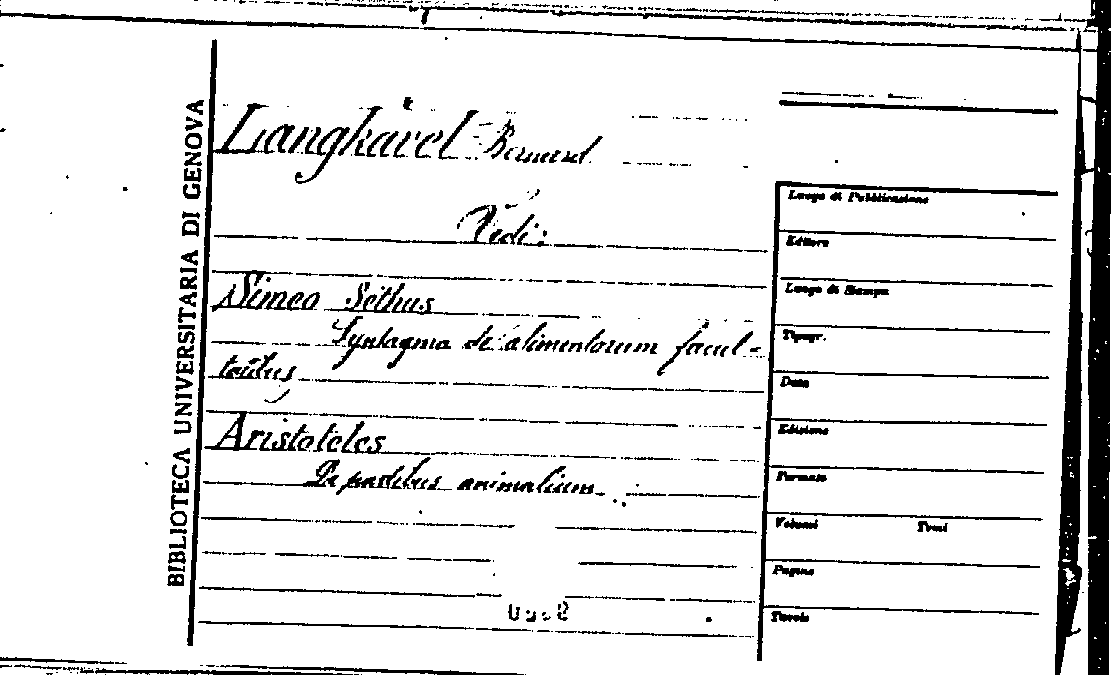 BIBLIOTECA UNIVERSITARIA DI GENOVA
Langkavel Bernard
Vedi:
Simeo Sethus
Syntagma de alimentorum facul-
tatibus
Aristoteles
De partibus animalium
Luogo di Pubblicazione
Editore
Luogo di Stampa
Tipogr.
Data
Edizione
Formato
Volumi Tomi
Pagine
Tavole